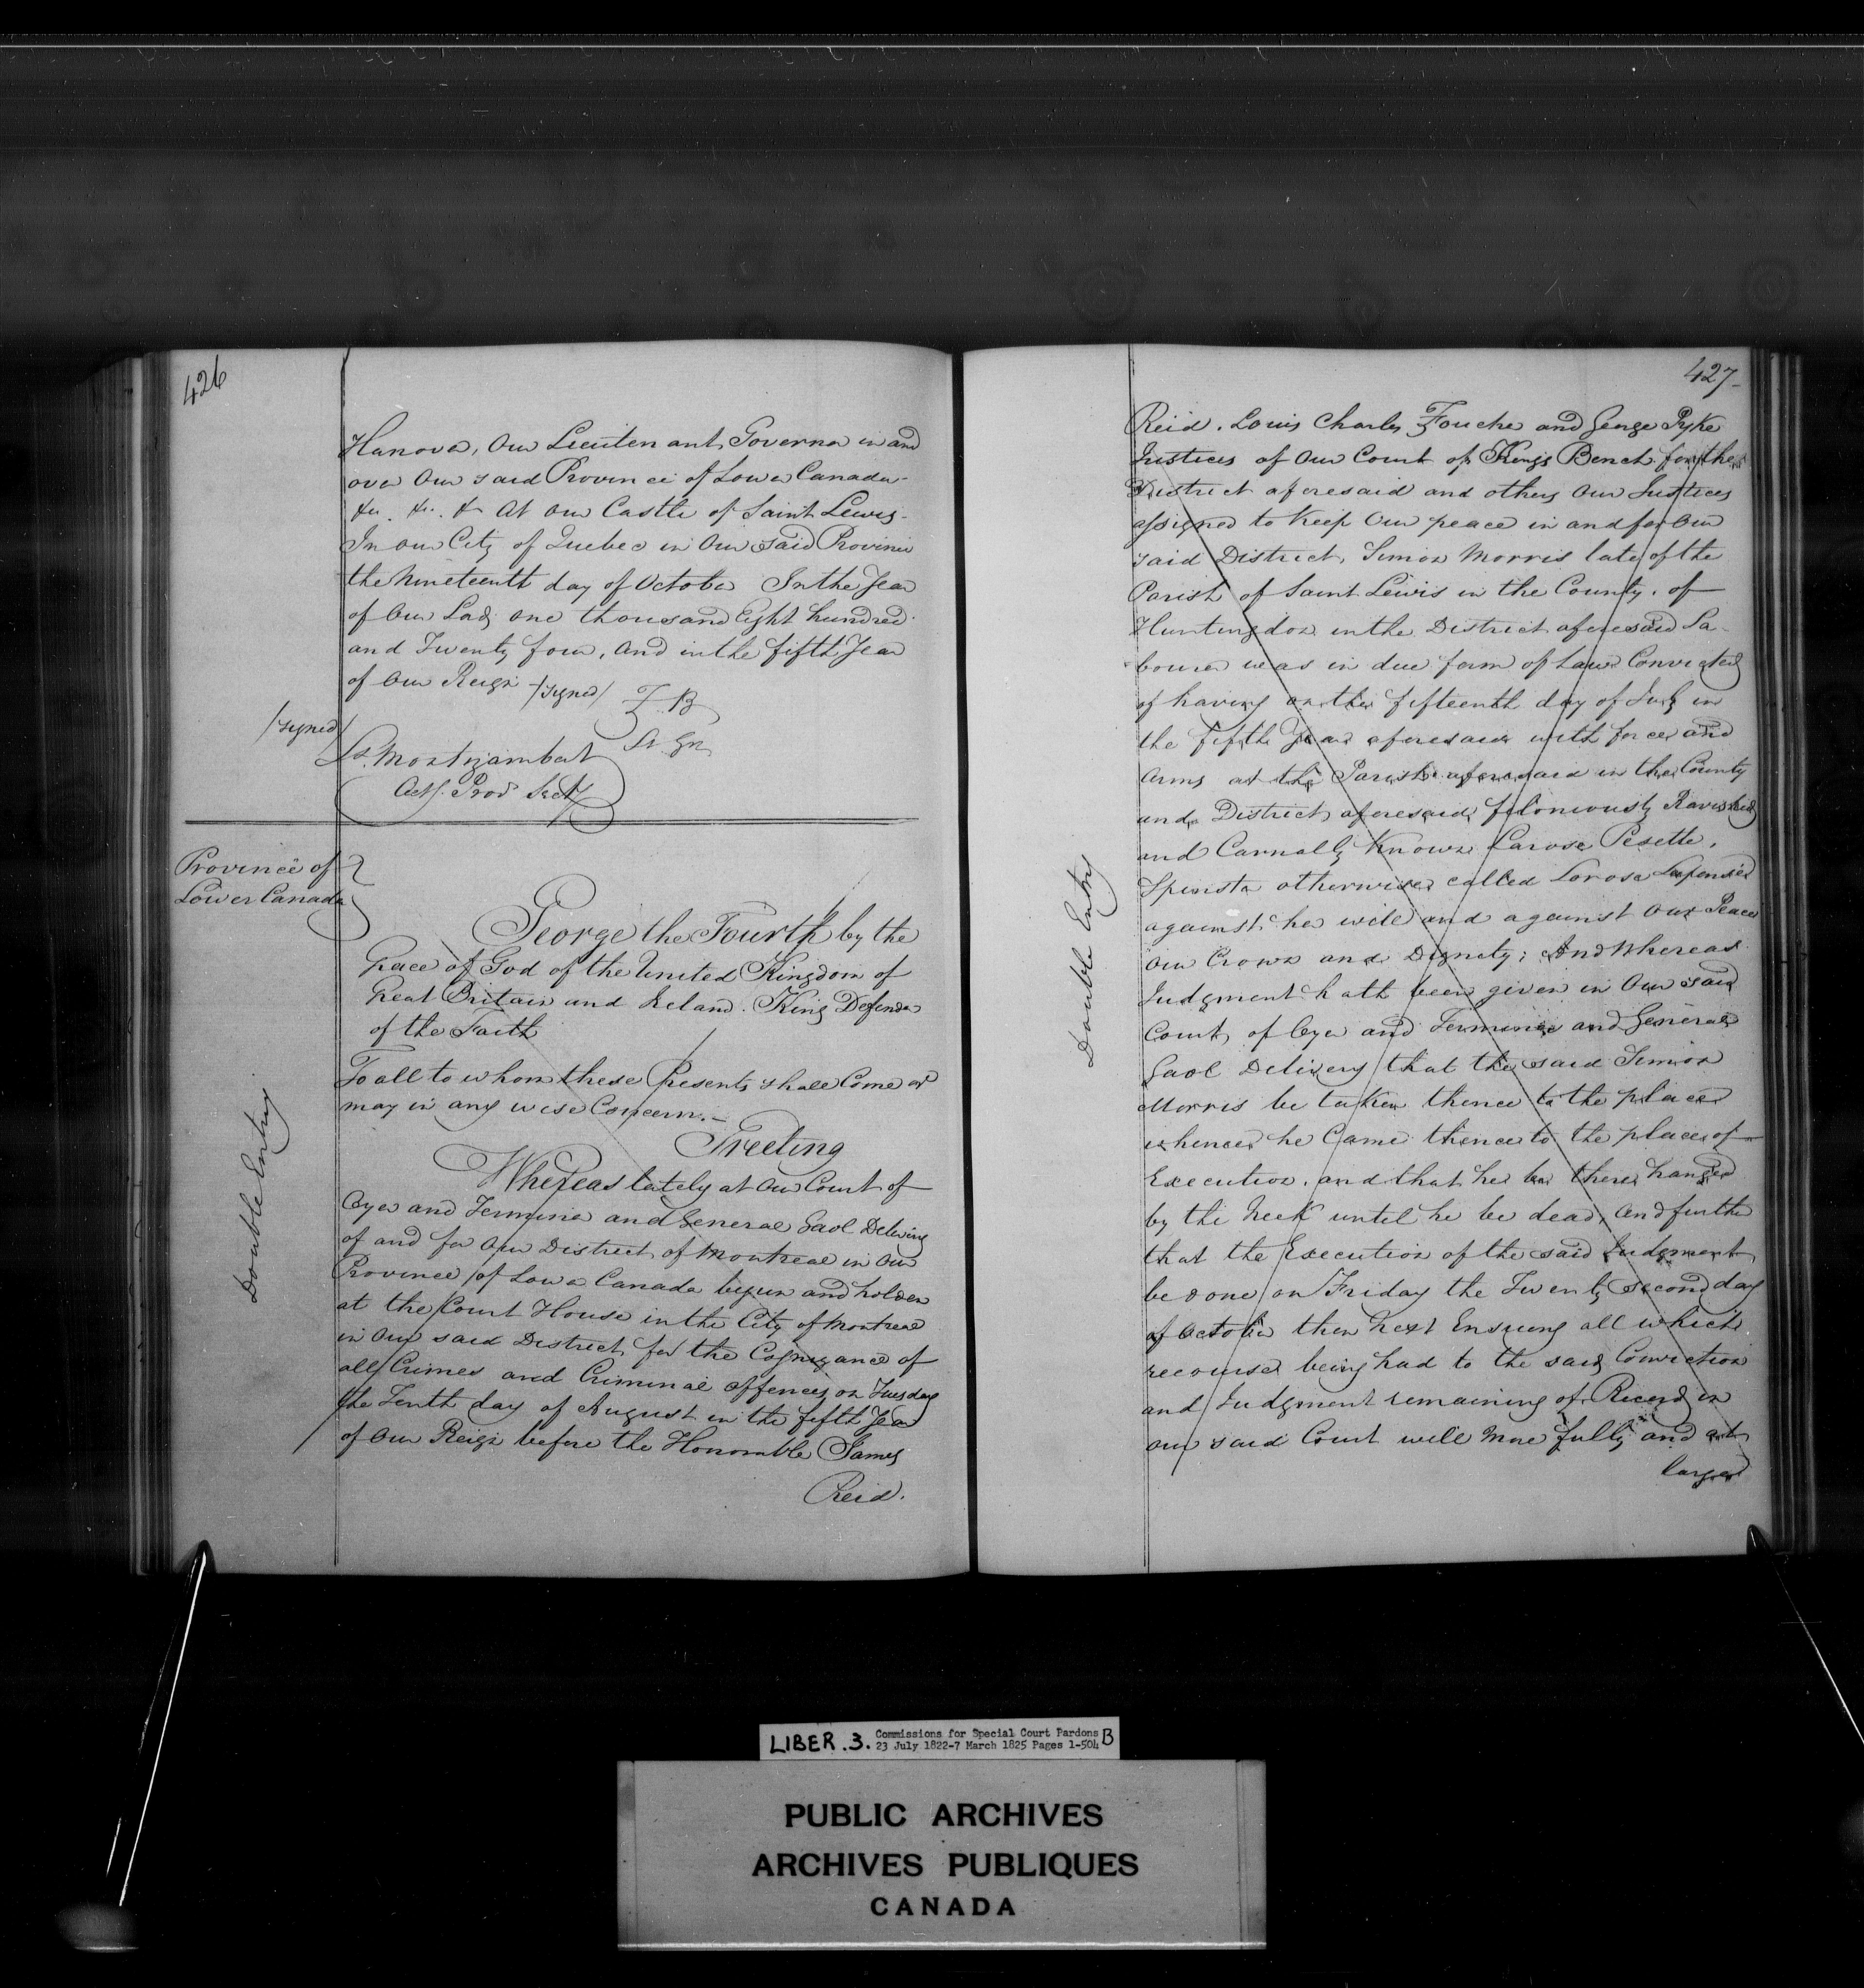 426
Hanover, Our Lieutenant Governor in and
over Our said Province of Lower Canada
&c. &c. &c At our Castle of Saint Lewis
In our City of Quebec in Our said Province
the Nineteenth day of October In the Year
of Our Lord one thousand Eight hundred
and Twenty four, and in the fifth Year
of Our Reign /signed/ F. B
Lt. Gr.
/signed/
Ls. Montizambert
Actg. Prov. Secty
Province of
Lower Canada
George the Fourth by the
Grace of God of the United Kingdom of
Great Britain and Ireland. King Defender
of the Faith
To all to whom these Presents shall Come or
may in any wise Concern.
Greeting
Whereas lately at our Court of
Oyer and Terminer and General Gaol Delivery
of and for Our District of Montreal in Our
Province of Lower Canada begun and holden
at the Court House in the City of Montreal
in Our said District for the Cognizance of
all Crimes and Criminal offences on Tuesday
the Tenth day of August in the fifth Year
of Our Reign before the Honorable James
Reid.
Double Entry
427
Reid. Louis Charles Foucher and George Pyke
Justices of Our Court of Kings Bench for the
District aforesaid and others Our Justices
assigned to Keep Our peace in and for Our
said District, Simon Morris late of the
Parish of Saint Lewis in the County. of
Huntingdon in the District aforesaid La-
bourer was in due form of Law Convicted
of having on the fifteenth day of July in
the fifth Year aforesaid with force and
Arms at the Parish aforesaid in the County
and District aforesaid feloniously Ravished
and Carnally Known Larose Pesette,
Spinster otherwise called Lorose
against her will and against Our Peace
Our Crown and Dignity; And Whereas
Judgment hath been given in Our said
Court of Oyer and Terminer and General
Gaol Delivery that the said Simon
Morris be taken thence to the place
whence he Came thence to the place of
Execution, and that he be there hanged
by the Neck until he be dead, And further
that the Execution of the said Judgment
be done on Friday the Twenty second day
of October then next Ensuing all which
recourse being had to the said Conviction
and Judgment remaining of Record in
our said Court will more fully and at
large
Double Entry
LIBER.3. Commissions for Special Court Pardons B
23 July 1822-7 March 1825 Pages 1-504
PUBLIC ARCHIVES
ARCHIVES PUBLIQUES
CANADA